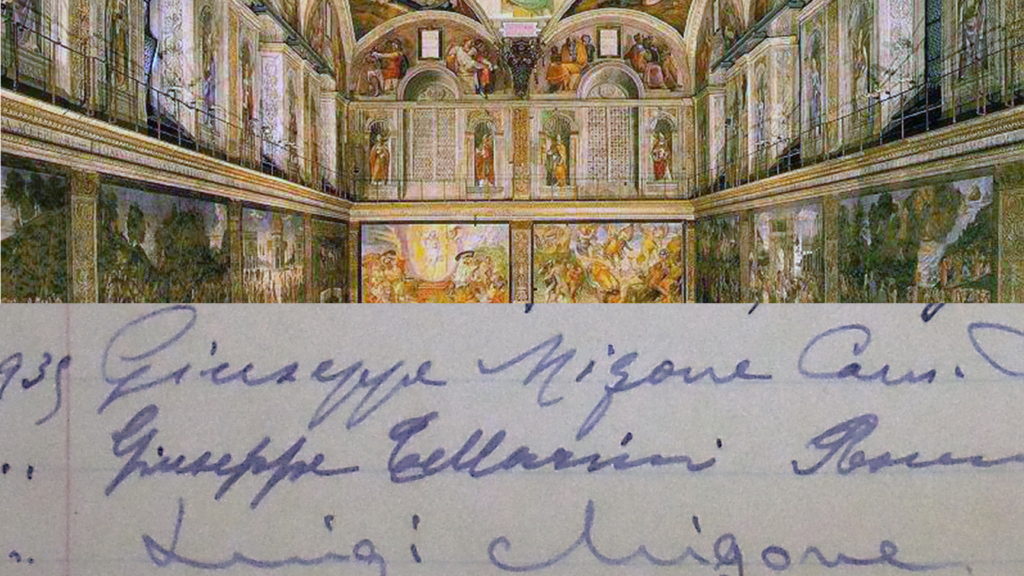 939 Giuseppe Migone Cam.
.. Giuseppe Tellarini Rom
.. Luigi Migone